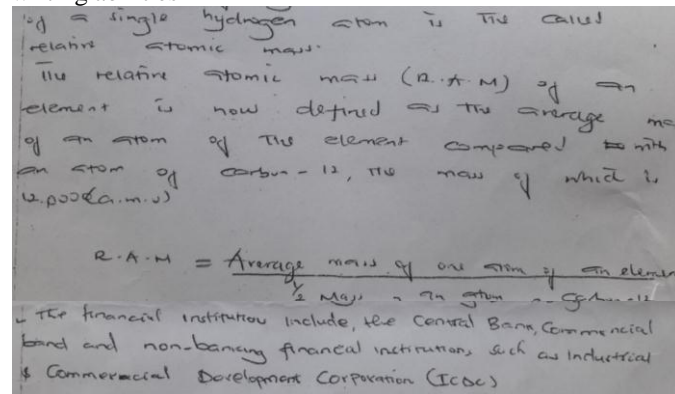 of a single hydrogen atom is the called
relative atomic mass.
The relative atomic mass (R.A.M) of an
element is now defined as the average
of an atom of the element compared to with
an atom of carbon - 12, the mass of which is
12.000(a.m.u)
R.A.M = Average mass of one atom of an
Mass atom Carbon-12
- The financial institution include, the Central Bank, Commencial
band and non-banking financial institutions such as Industrial
& Commercial Development Corporation (ICDC)